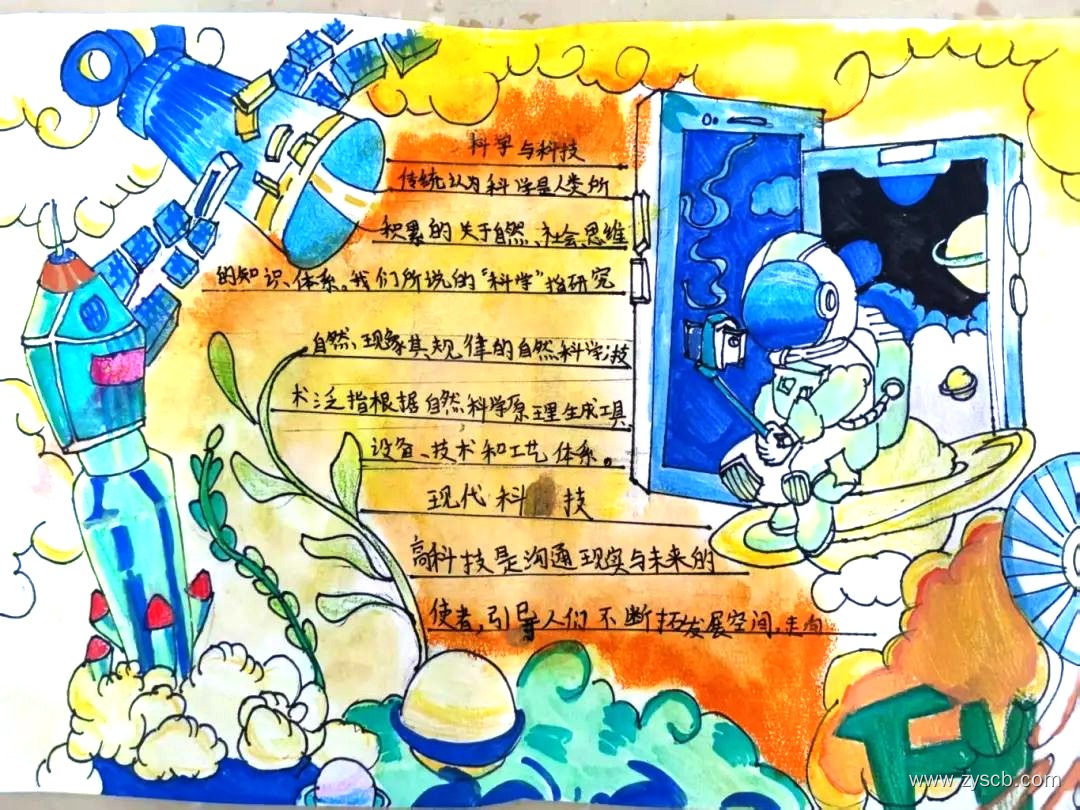 科学与科技
传统认为科学是人类所
积累的关于自然、社会、思维
的知识、体系。我们所说的“科学”指研究
自然、现象其规律的自然科学;技
术泛指根据自然科学原理生成工具
设备、技术和工艺体系。
现代科技
高科技是沟通现实与未来的
使者,引导人们不断拓发展空间,走向
www.zyscb.com